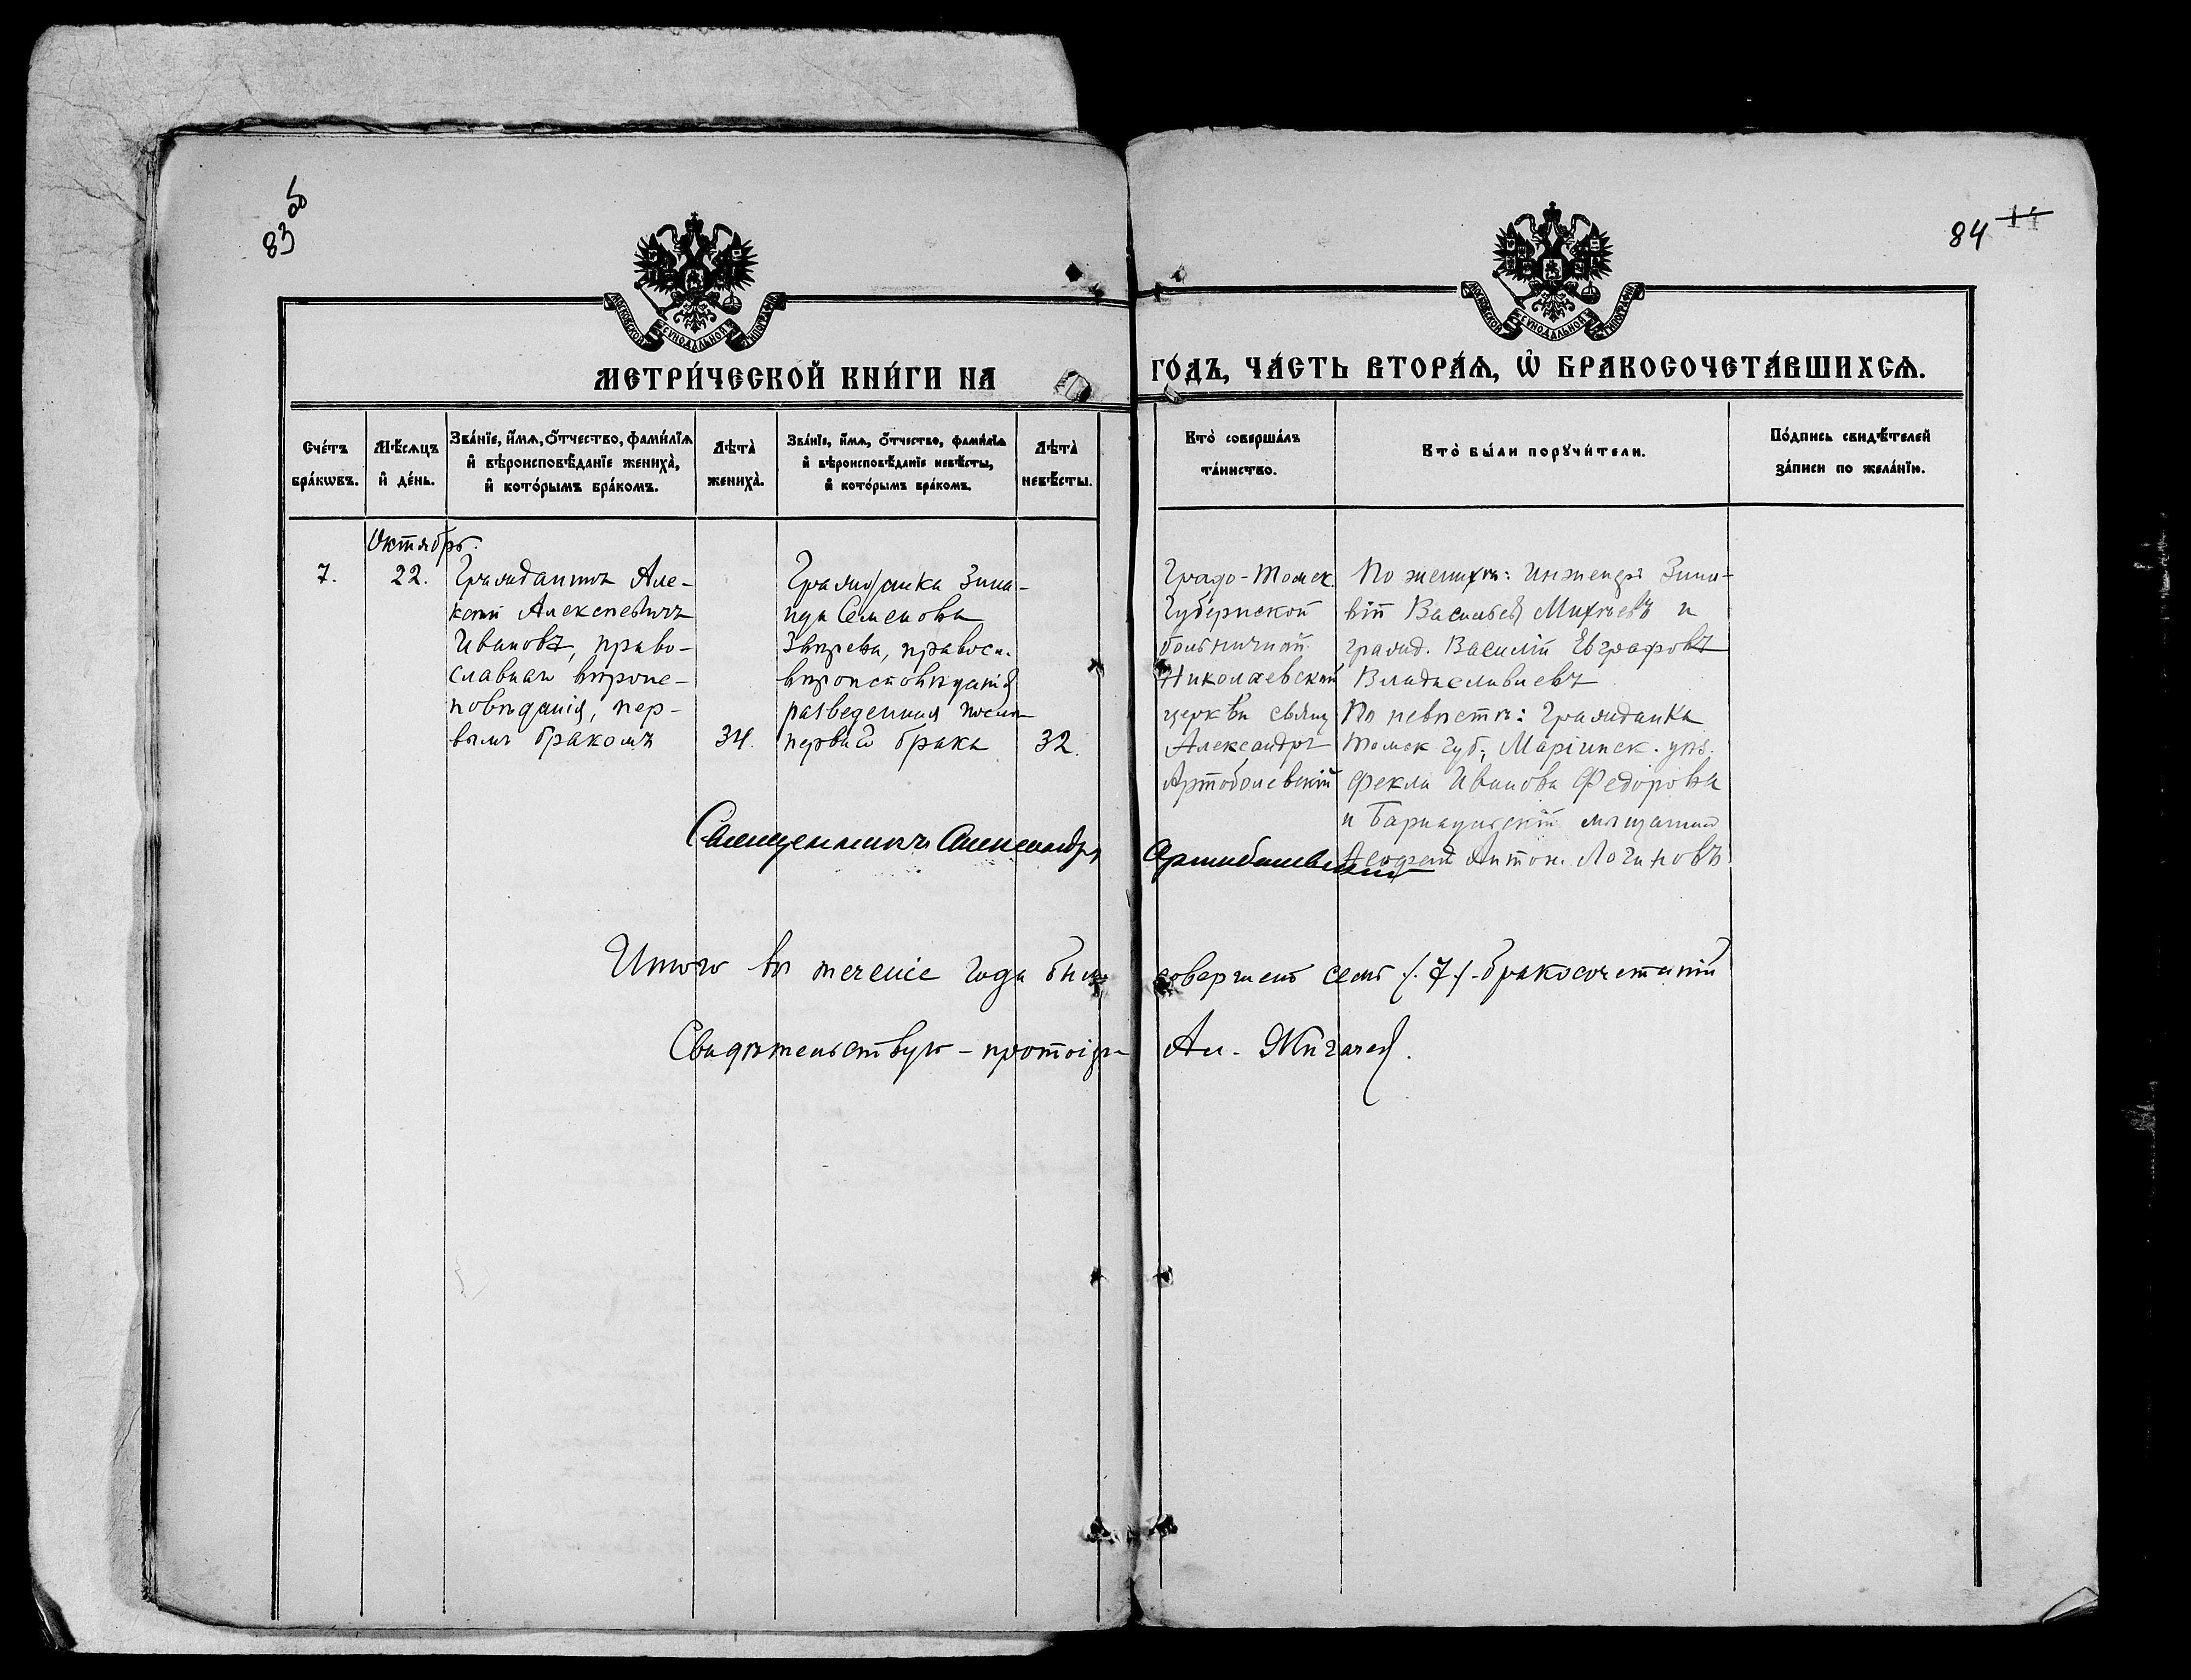 83
84
МОСКОВСКОЙ СѴНОДАЛЬНОЙ ТИПОГРАФІИ
МОСКОВСКОЙ СѴНОДАЛЬНОЙ ТИПОГРАФІИ
МЕТРИ́ЧЕСКОЙ КНИ́ГИ НА ГО́ДЪ, ЧА́СТЬ ВТОРА́Ѧ, Ѡ҆ БРАКОСОЧЕТА́ВШИХСѦ.
Сче́тъ
бра́кѡвъ.
Мѣ́сѧцъ
и҆ де́нь.
Зва́нїе, и҆́мѧ, ѻ҆́тчество, фами́лїѧ
и҆ вѣроисповѣ́данїе жениха̀,
и҆ кото́рымъ бра́комъ.
Лѣта̀
жениха̀.
Зва́нїе, и҆́мѧ, ѻ҆́тчество, фами́лїѧ
и҆ вѣроисповѣ́данїе невѣ́сты,
и҆ кото́рымъ бра́комъ.
Лѣта̀
невѣ́сты.
Кто̀ соверша́лъ
та́инство.
Кто̀ бы́ли порꙋчи́тели.
По́дпись свидѣ́телей
за́писи по жела́нїю.
Октябрь.
7.
22.
Гражданинъ Але-
ксѣй Алексѣевичъ
Ивановъ, право-
славнаго вѣроис-
повѣданія, пер-
вымъ бракомъ
34.
Гражданка Зина-
ида Семенова
Звѣрева, правосл.
вѣроисповѣданія
разведенная послѣ
перваго брака
32.
Градо-Томск.
Губернской
больничной
Николаевской
церкви свящ
Александръ
Артоболевскій
По женихѣ: Инженеръ Зино-
вій Васильев Михѣевъ и
гражд. Василій Евграфовъ
Владиславлевъ
По невѣстѣ: Гражданка
Томск губ., Маріинск. уѣз.
Фекла Иванова Федорова
и Барнаульскій мѣщанинъ
Антон. Логиновъ
Священникъ Александръ Артоболевскій
Итого въ теченіе года было совершено семь (7) бракосочетаній
Свидѣтельствую - протоіер. Ал.